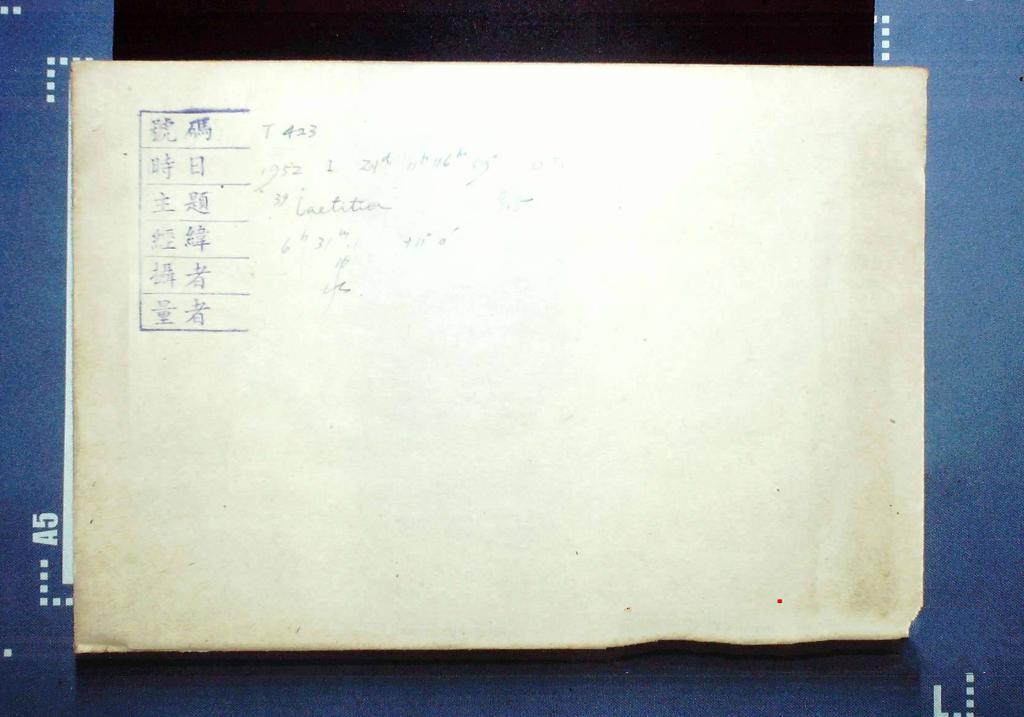 號碼 T 423
時日 1952 24ᵈ 11ʰ 46ᵐ
主題 39 Laetitia 9.5
經緯 6ʰ 31ᵐ.1 +11° 0′
攝者
量者
A5